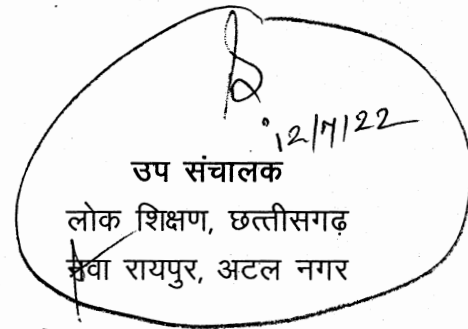 12/7/22
उप संचालक
लोक शिक्षण, छत्तीसगढ़
नवा रायपुर, अटल नगर